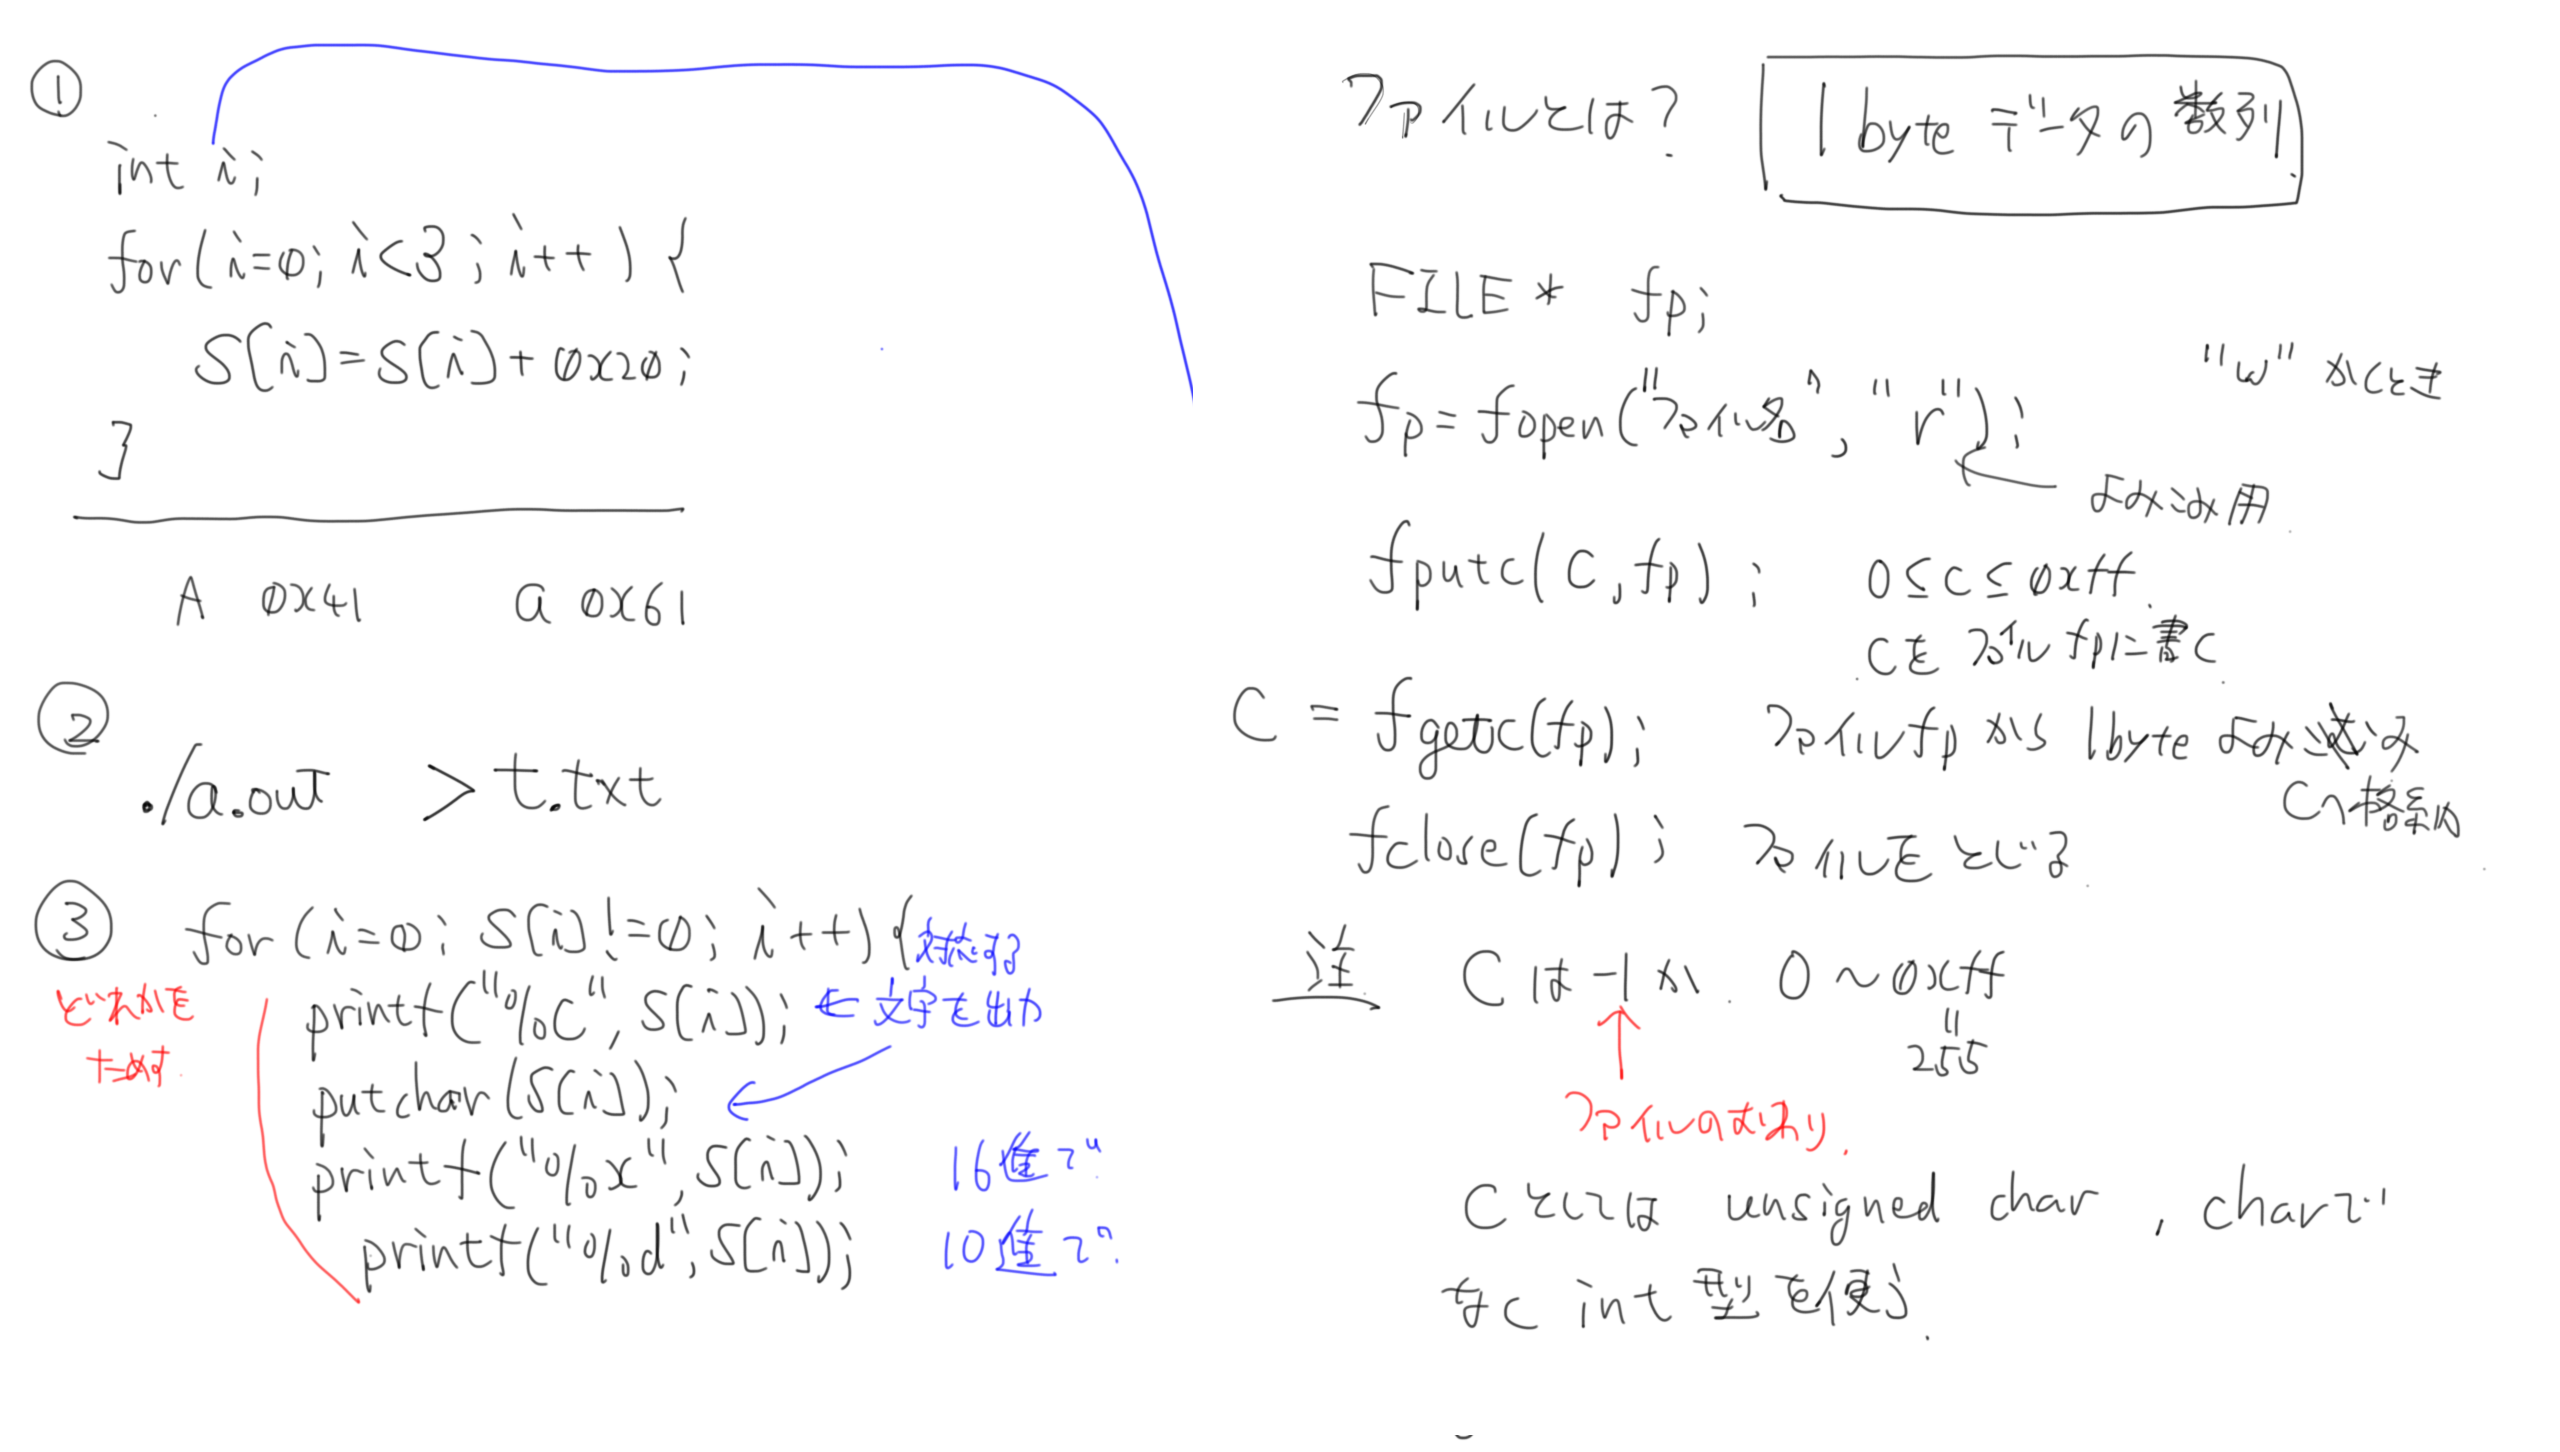 ①
int i;
for(i=0; i<3; i++) {
S[i]=S[i]+0x20;
}
A 0x41 a 0x61
②
./a.out >t.txt
③
for (i=0; S[i]!=0; i++) {
対応する
printf("%c", S[i]); ← 文字を出力
どれかを
ためす
putchar(S[i]);
printf("%x", S[i]); 16進で
printf("%d", S[i]); 10進で
ファイルとは? 1byteデータの数列
FILE* fp;
"w" かくとき
fp=fopen("ファイル名", "r");
よみこみ用
fputc(C,fp); 0≤c≤0xff
cをファイルfpに書く
C = fgetc(fp); ファイルfpから1byteよみこみ
Cへ格納
fclose(fp); ファイルをとじる
注 Cは-1か 0~0xff
"
255
ファイルのおわり.
Cとしては unsigned char , charで
なく int型を使う.